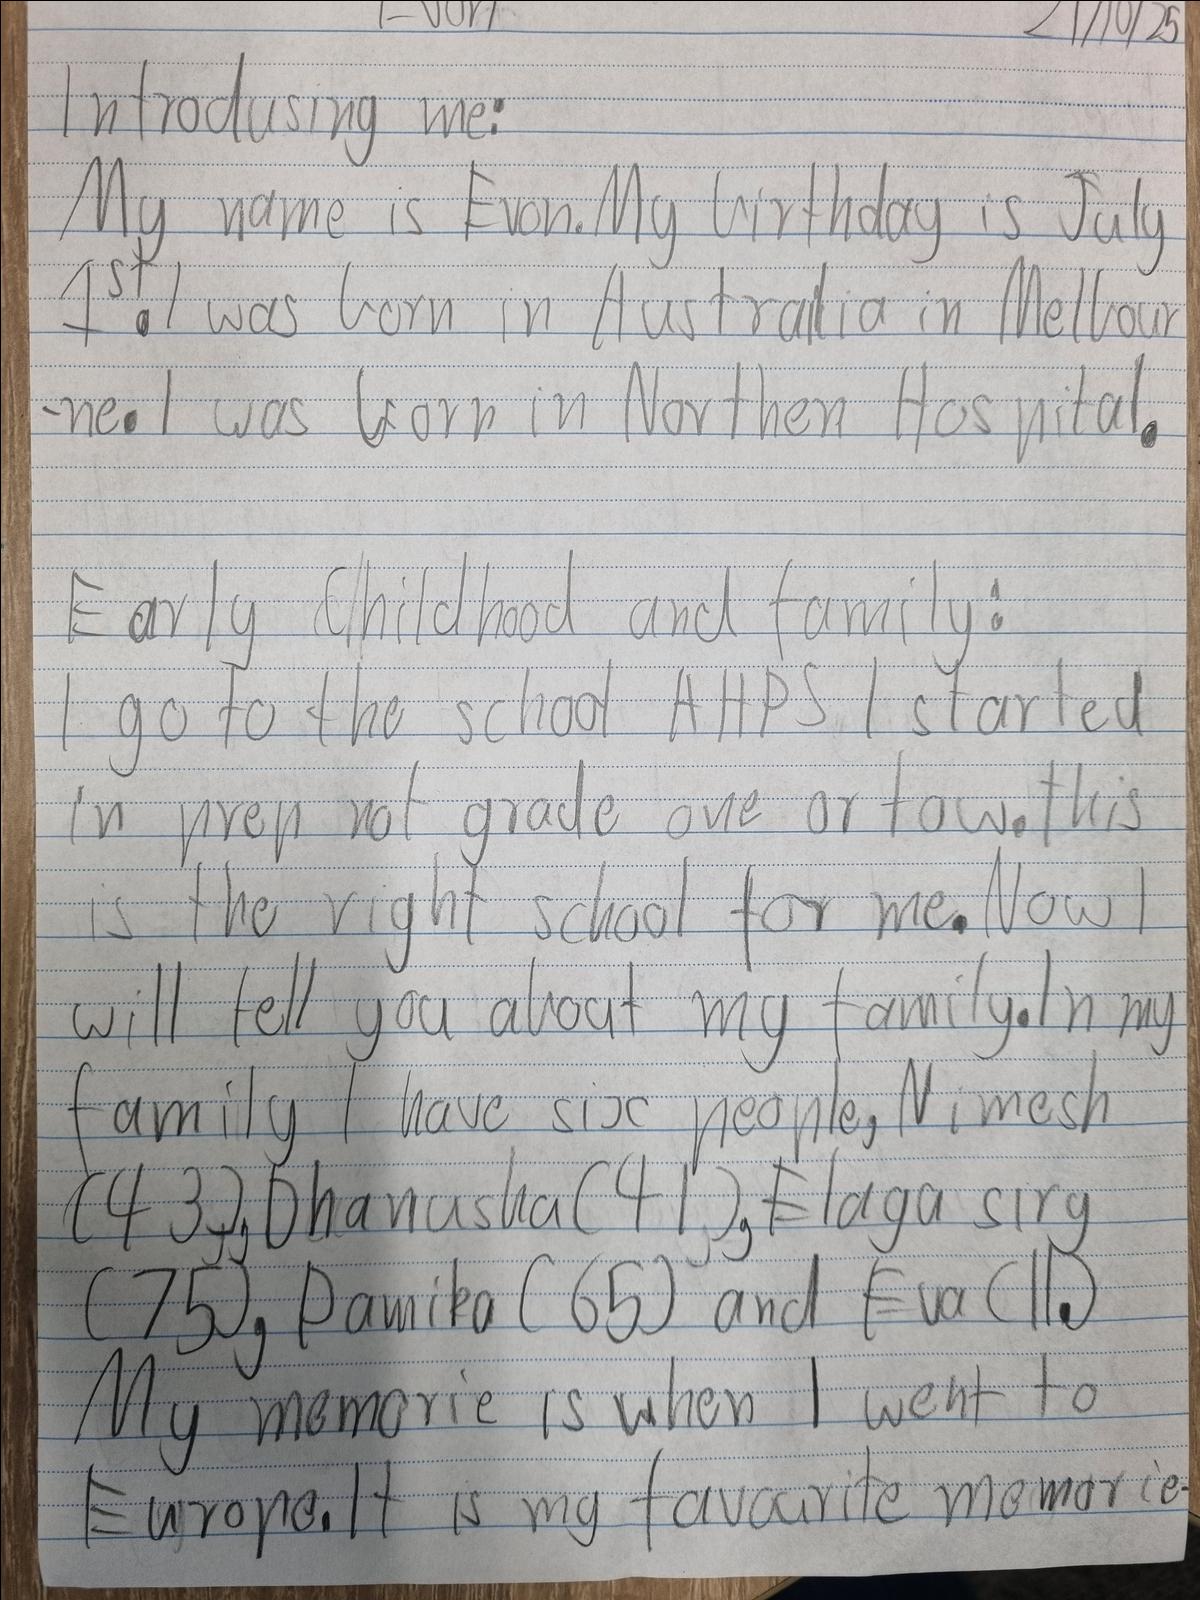 Evon 21/10/25
Introdusing me:
My name is Evon. My birthday is July
1st. I was born in Australia in Melbour
-ne. I was born in Northen Hospital.
Early Childhood and family:
I go to the school AHPS I started
in prep not grade one or tow. this
is the right school for me. Now I
will tell you about my family. In my
family I have six people, Nimesh
(43), Dhanusha (41), Elaga siry
(75), Damika (65) and Eva (11).
My memorie is when I went to
Europe. It is my favourite memorie.